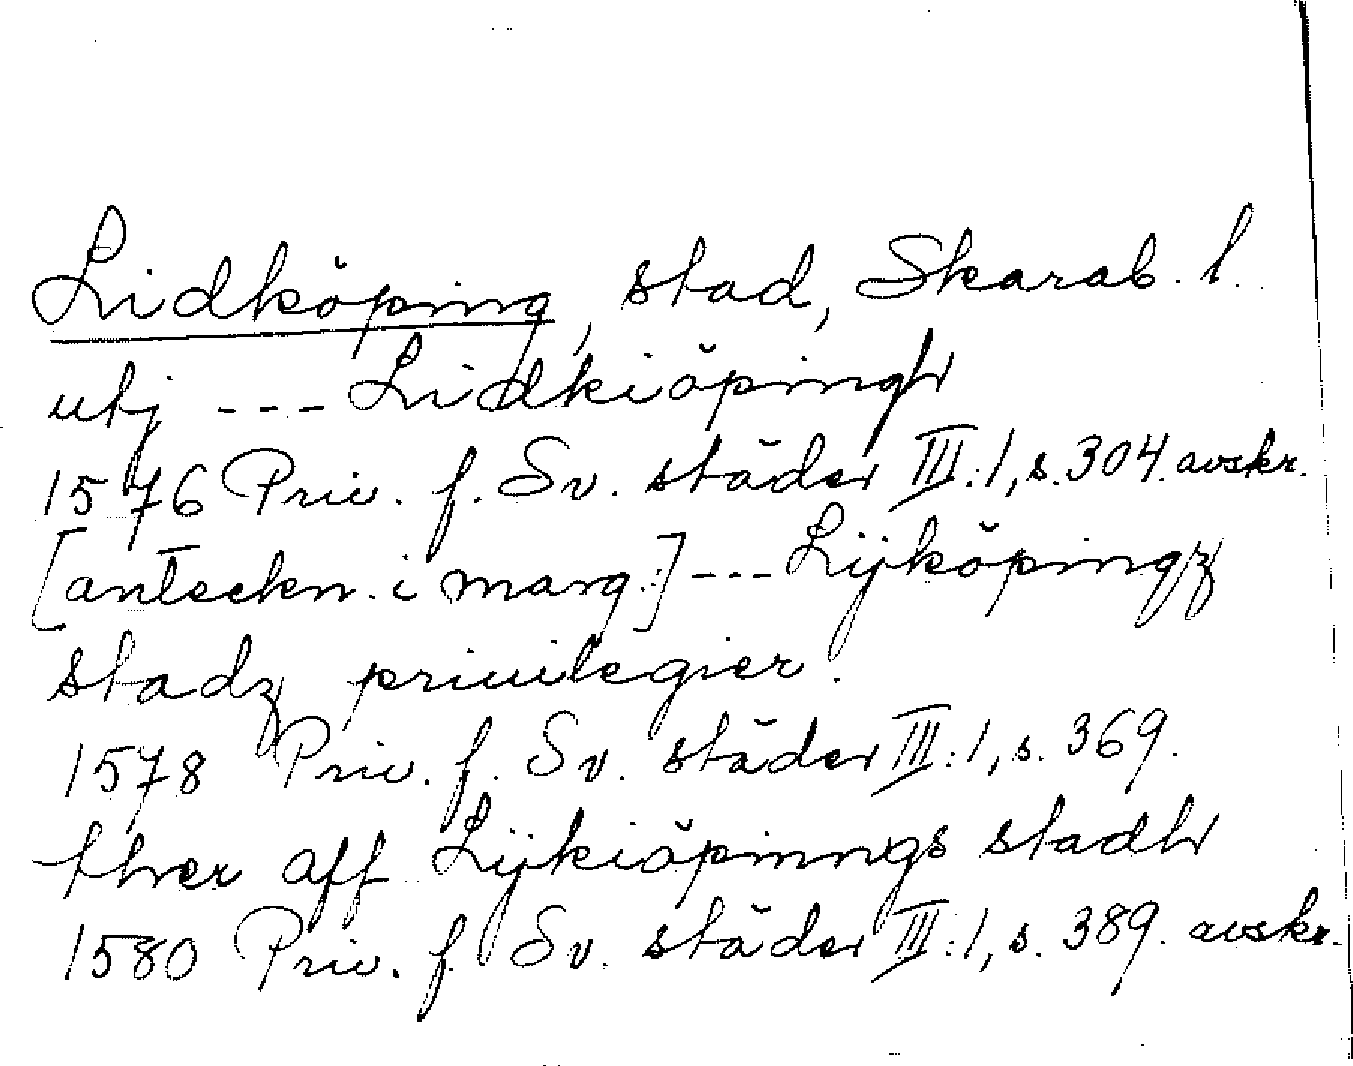 Lidköping, stad, Skarab. l.
utj --- Lidkiöpingh
1576 Priv. f. Sv. städer III:1, s. 304. avskr.
[anteckn. i marg.] --- Lijköpingz
stadz priuilegier.
1578 Priv. f. Sv. städer III:1, s. 369.
ther aff Lijkiöpinngs stadh
1580 Priv. f. Sv. städer III:1, s. 389. avskr.